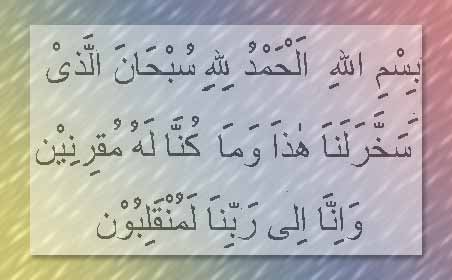 بِسْمِ اللهِ اَلْحَمْدُ لِلّٰهِ سُبْحَانَ الَّذِىْ
سَخَّرَلَنَا هٰذَا وَمَا كُنَّا لَهُ مُقرِنِيْن
وَاِنَّا اِلى رَبِّنَا لَمُنْقَلِبُوْن